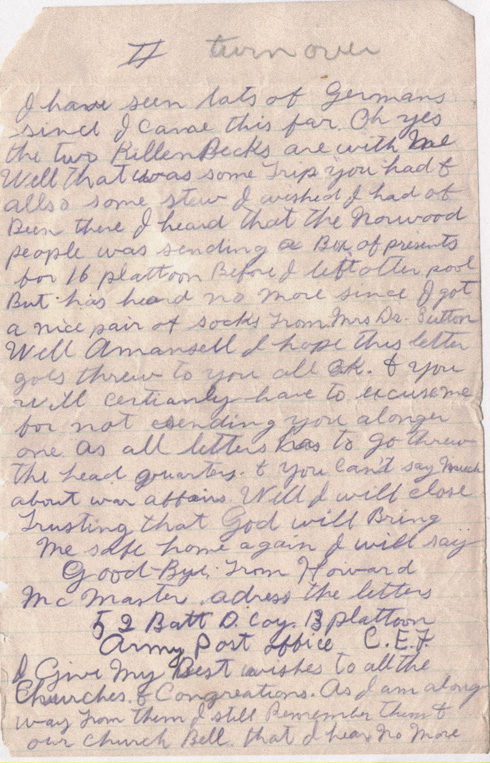 II turn over
I have seen lots of Germans
since I came this far. Oh yes
the two KillenBecks are with me
Well that was some Trip you had &
allso some stew I wished I had of
Been there I heard that the Norwood
people was sending a Box of presents
for 16 plattoon Before I left otter pool
But has heard no more since I got
a nice pair of socks From Mrs Dr. Sutton
Well Amansell I hope this letter
goes threw to you all ok. & you
will certianly have to excuse me
for not sending you alonger
one as all letters has to go threw
the head quarters. & you can't say much
about war affairs. Well I will close
Trusting that God will Bring
me safe home again I will say
Good-Bye. From Howard
Mc Master. adress the letters
52 Batt D. Coy. 13 plattoon
Army Post office C.E.F
I Give My Best wishes to all the
Churches. & Congreations. As I am along
way From them I still Remember them &
our Church Bell. that I hear No More